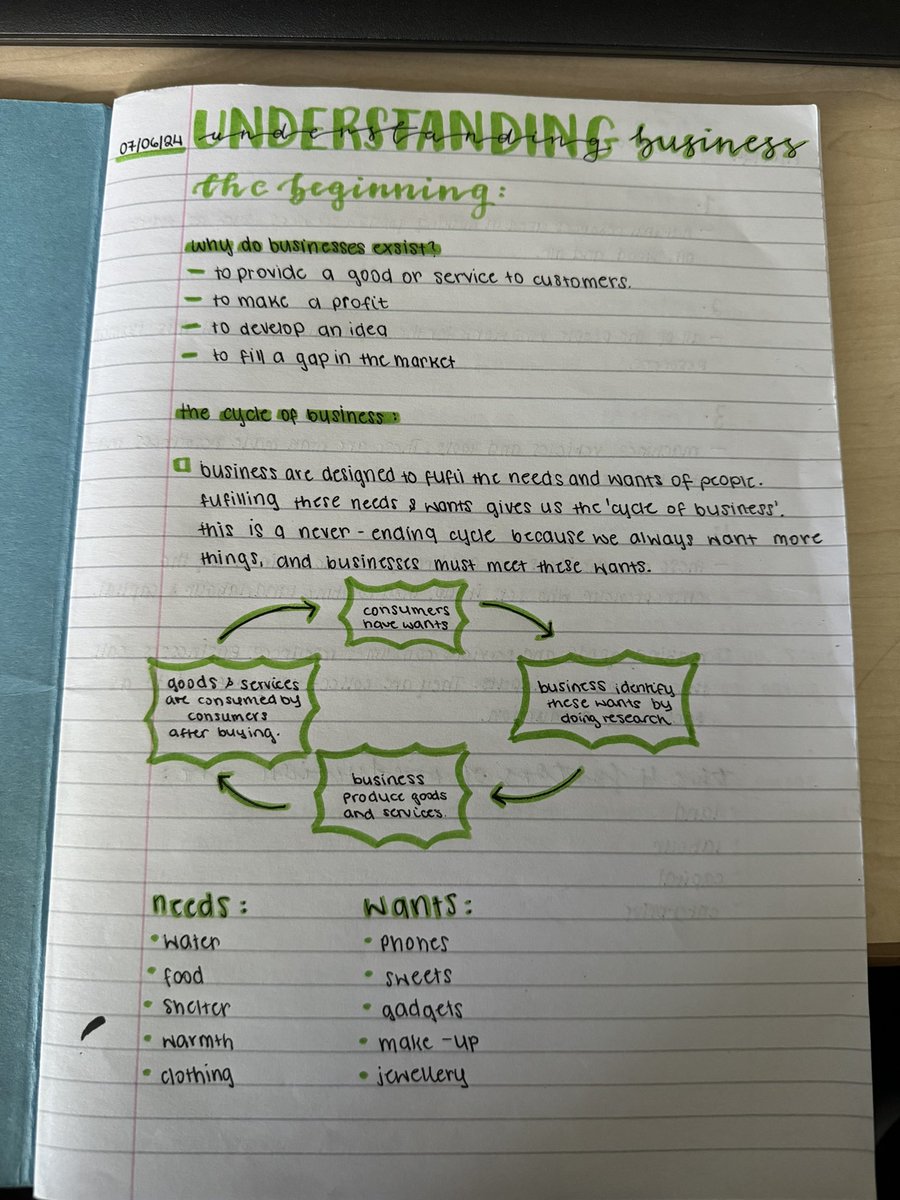 07/06/24 UNDERSTANDING understanding business
the beginning:
why do businesses exsist?
– to provide a good or service to customers.
– to make a profit
– to develop an idea
– to fill a gap in the market
the cycle of business:
business are designed to fufil the needs and wants of people.
fufilling these needs & wants gives us the 'cycle of business'.
this is a never-ending cycle because we always want more
things, and businesses must meet these wants.
consumers
have wants
business identify
these wants by
doing research
business
produce goods
and services.
goods & services
are consumed by
consumers
after buying.
needs:
• water
• food
• shelter
• warmth
• clothing
wants:
• phones
• sweets
• gadgets
• make-up
• jewellery